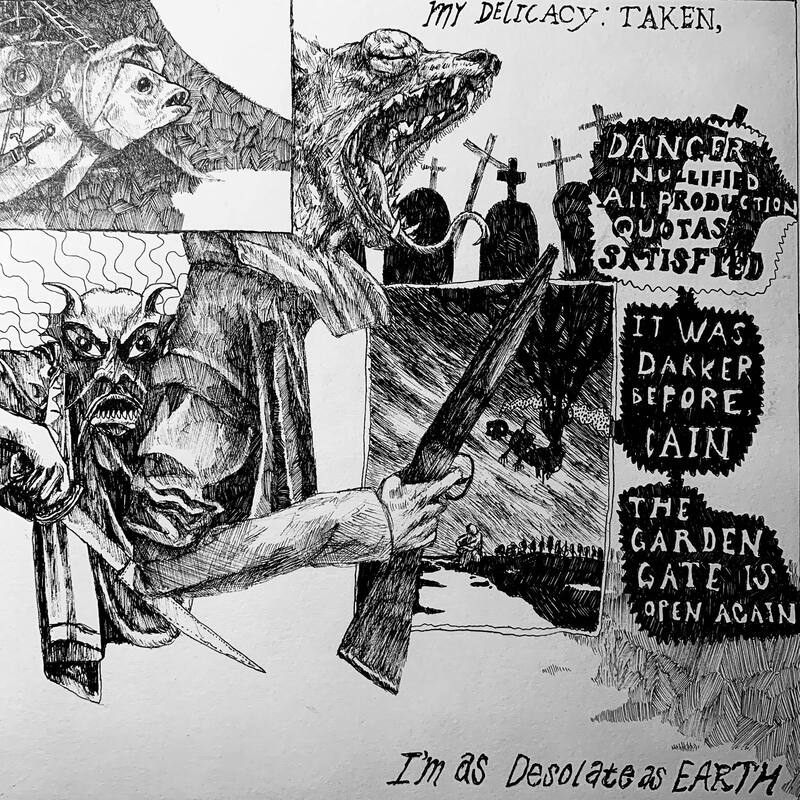 MY DELICACY: TAKEN,
DANGER
NULLIFIED
ALL PRODUCTION
QUOTAS
SATISFIED
IT WAS
DARKER
BEFORE,
CAIN
THE
GARDEN
GATE IS
OPEN AGAIN
I'm as Desolate as EARTH